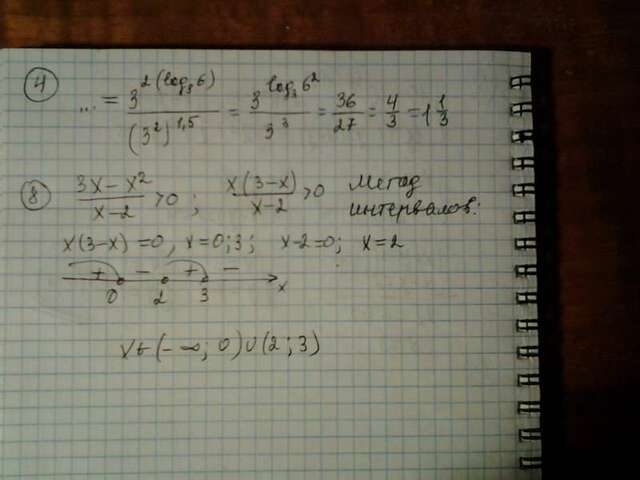 ④ ... = 3^{2(log_3 6)} / (3^2)^{1,5} = 3^{log_3 6^2} / 3^3 = 36/27 = 4/3 = 1 1/3
⑧ (3x - x^2)/(x-2) > 0 ; x(3-x)/(x-2) > 0 Метод
интервалов:
x(3-x) = 0, x = 0; 3; x-2=0; x = 2
+ - + -
0 2 3 x
x∈(-∞; 0)∪(2; 3)